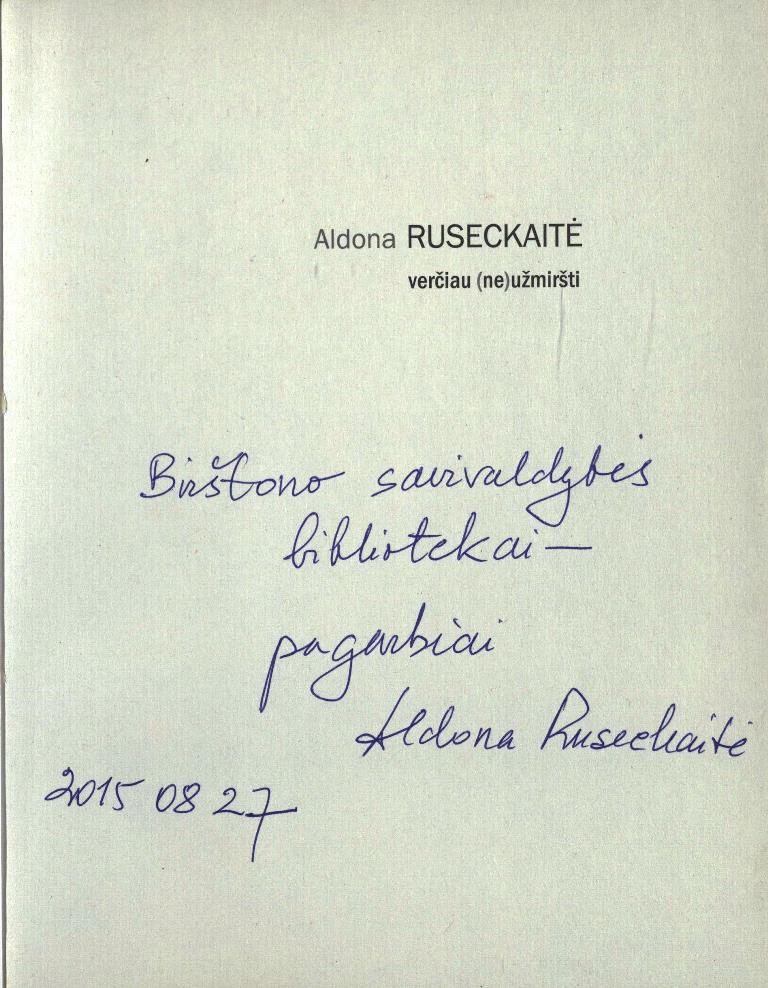 Aldona RUSECKAITĖ
verčiau (ne)užmiršti
Birštono savivaldybės
bibliotekai —
pagarbiai
Aldona Ruseckaitė
2015 08 27